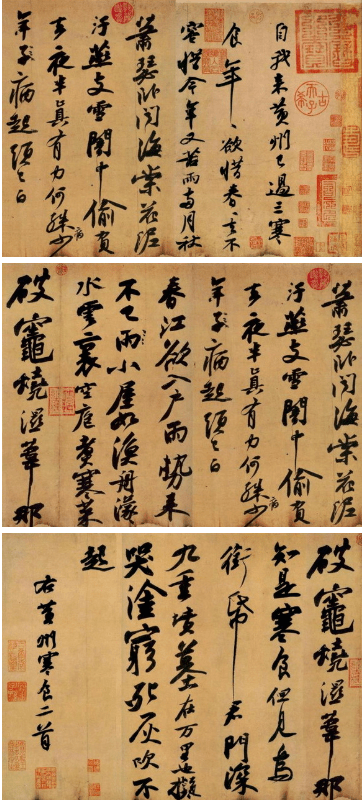 自我來黃州已過三寒
食年々欲惜春々去不
容惜今年又苦雨兩月秋
蕭瑟臥聞海棠花泥
汙燕支雪闇中偷負
去夜半真有力何殊病少
年子病起頭已白
古希天子
蕭瑟臥聞海棠花泥
汙燕支雪闇中偷負
去夜半真有力何殊病少
年子病起頭已白
春江欲入戶雨勢來
不已雨小屋如漁舟濛々
水雲裏空庖煮寒菜
破竈燒濕葦那
破竈燒濕葦那
知是寒食但見烏
銜帋君門深
九重墳墓在万里也擬
哭塗窮死灰吹不
起
右黃州寒食二首